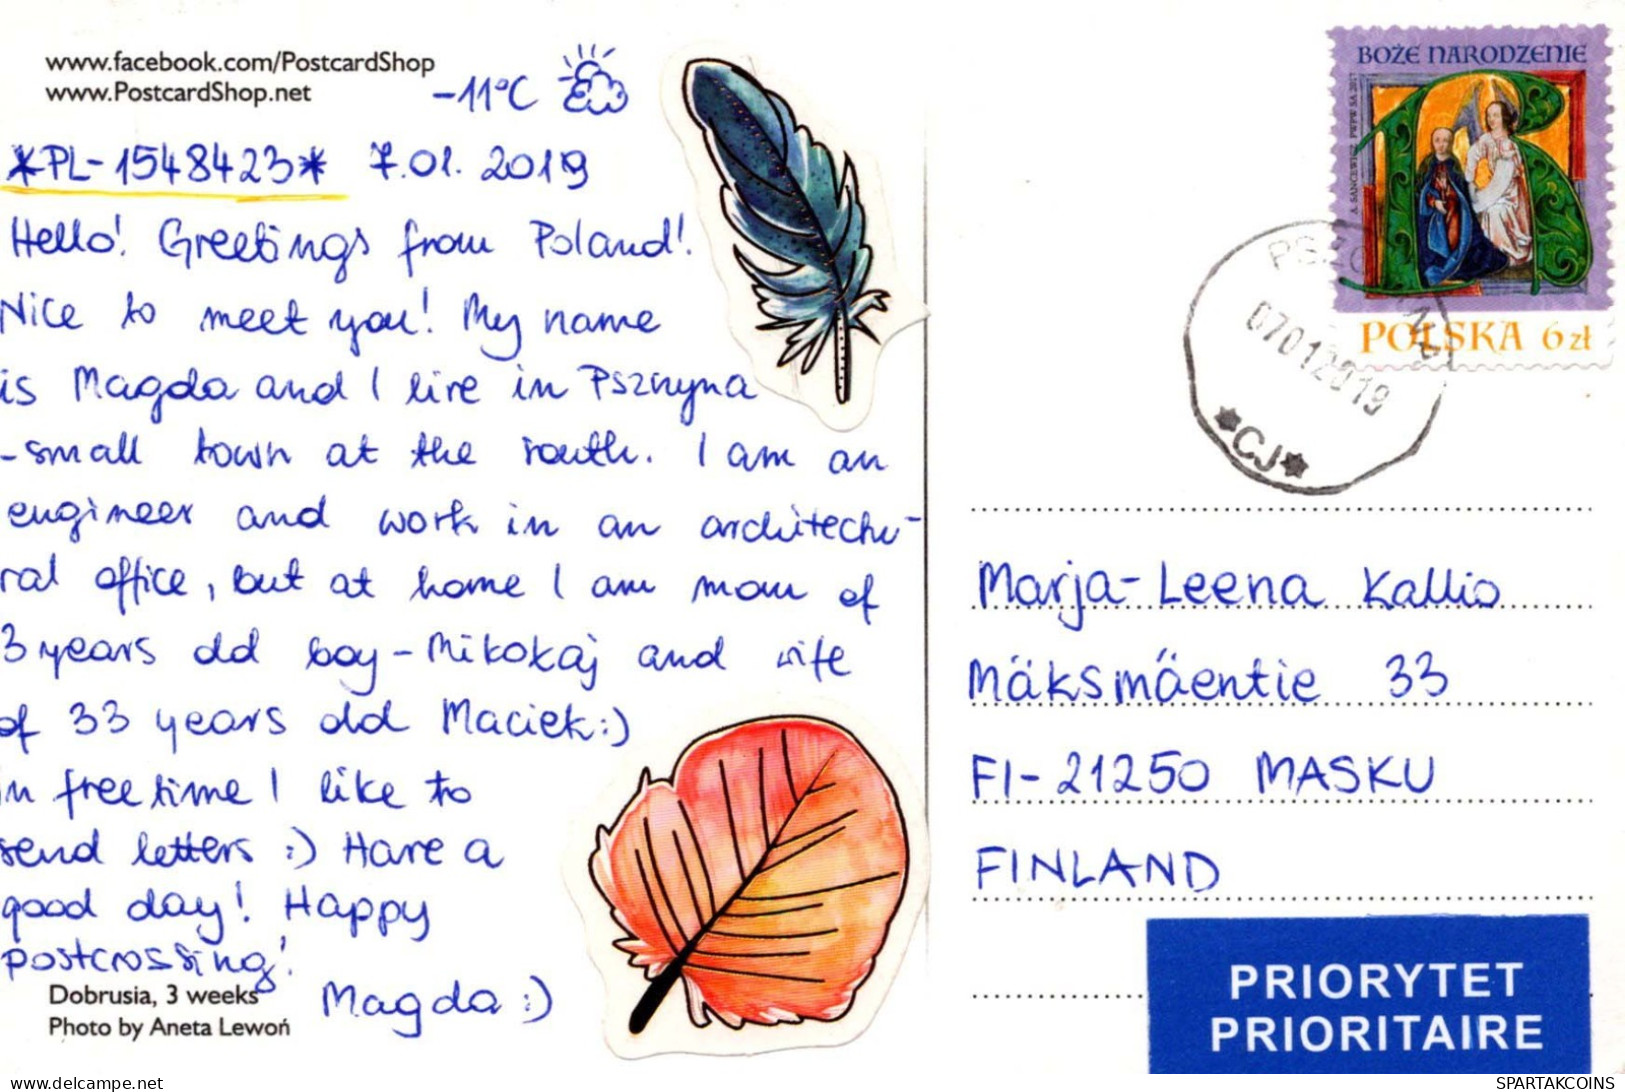 www.facebook.com/PostcardShop
www.PostcardShop.net
-11°C
*PL-1548423* 7.01.2019
Hello! Greetings from Poland!
Nice to meet you! My name
is Magda and I live in Pszczyna
- small town at the south. I am an
engineer and work in an architectu-
ral office, but at home I am mom of
3 years old boy - Mikołaj and wife
of 33 years old Maciek :)
in free time I like to
send letters :) Have a
good day! Happy
postcrossing!
Magda :)
Dobrusia, 3 weeks
Photo by Aneta Lewoń
BOŻE NARODZENIE
A. SANCEWICZ PWPW SA 2017
POLSKA 6 zł
07012019
*CJ*
Marja-Leena Kallio
Mäksmäentie 33
FI-21250 MASKU
FINLAND
PRIORYTET
PRIORITAIRE
https://www.delcampe.net
SPARTAKCOINS